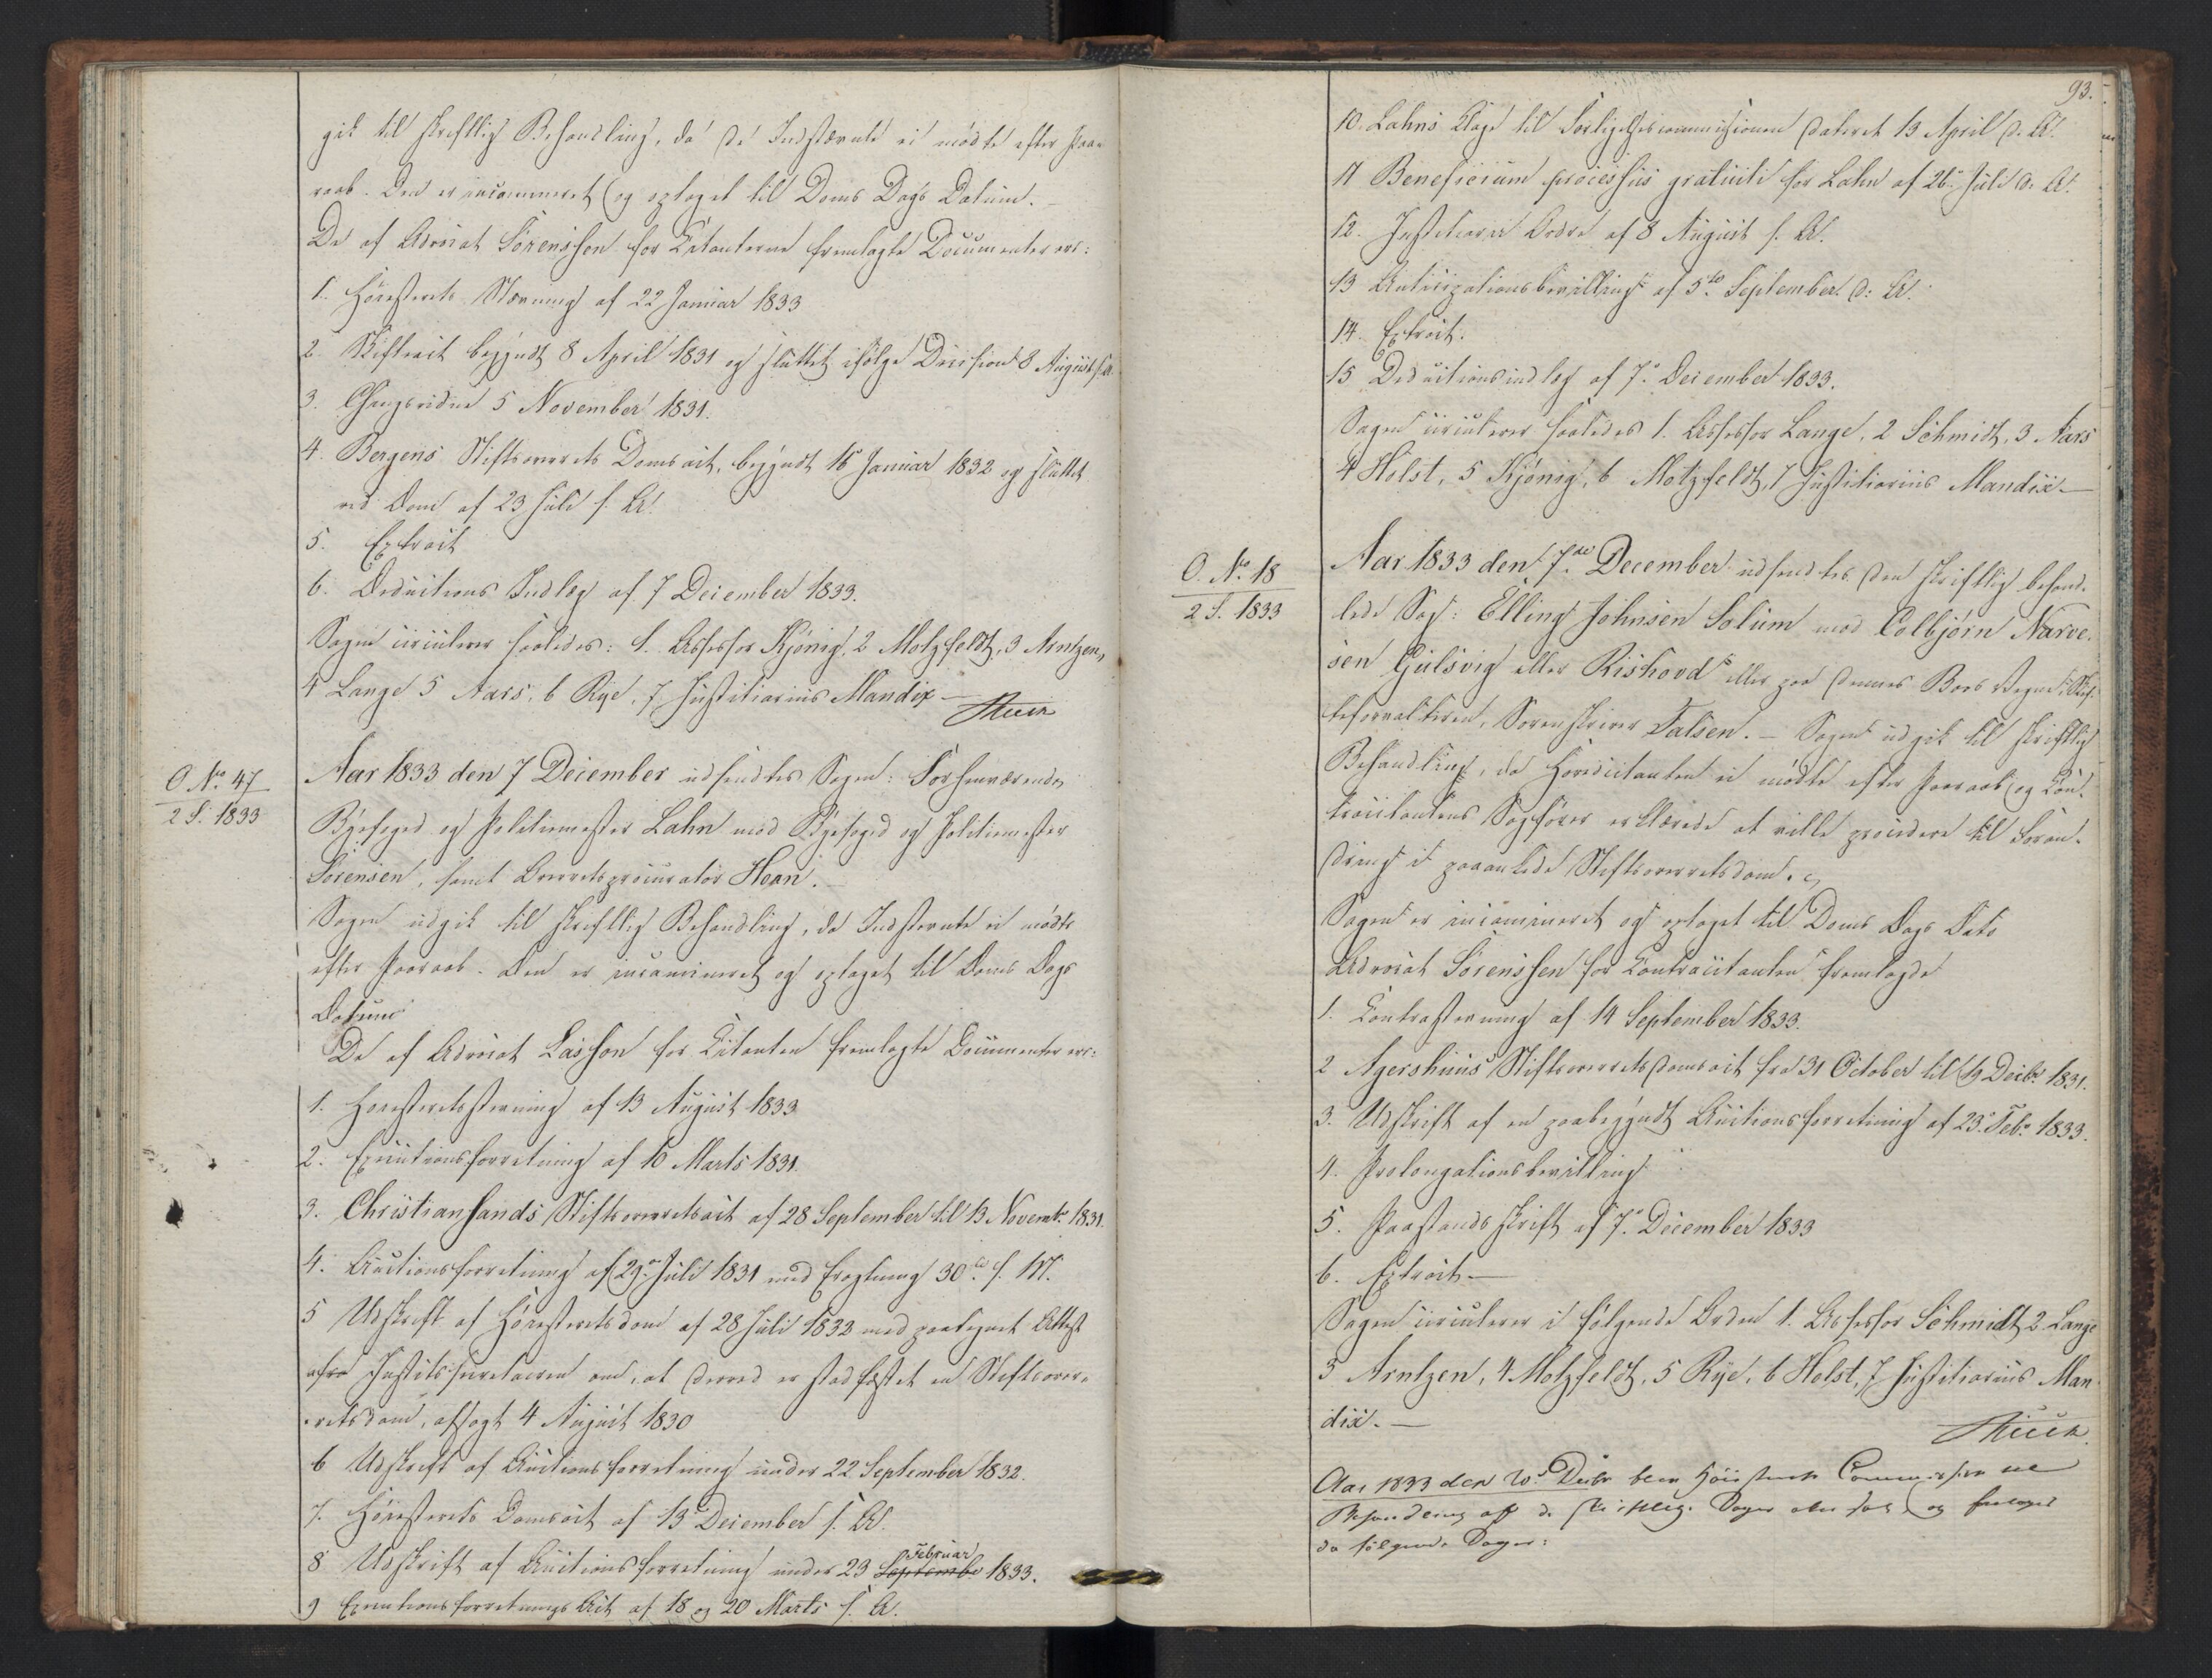 gik til skriftlig Behandling, da de Indstævnte ei mødte efter Paa-
raab. Den er incamineret og optaget til Doms Dags Datum. –
De af Advocat Sörensson for Citanterne fremlagte Documenter ere:
1. Høiesterets Stævning af 22 Januar 1833
2. Skifteact begyndt 8 April 1831 og sluttet ifølge Decision 8 August s. A.
3. Thingsvidne 5 November 1831.
4. Bergens Stiftsoverrets Domsact, begyndt 16 Januar 1832 og sluttet
ved Dom af 23 Juli s. A.
5. Extract
6. Deductions Indlæg af 7 December 1833.
Sagen circulerer saaledes: 1. Assessor Kjønig, 2 Motzfeldt, 3 Arntzen,
4 Lange 5 Aars, 6 Rye, 7 Justitiarius Mandix —
O. No. 47
2 S. 1833
Aar 1833 den 7 December udsendtes Sagen: Forhenværende
Byefoged og Politiemester Lahn mod Byefoged og Politiemester
Sörensen, samt Overretsprocurator Hoan. –
Sagen udgik til skriftlig Behandling, da Indstevnte ei mødte
efter Paaraab. Den er incamineret og optaget til Doms Dags
Datum
De af Advocat Lasson for Citanten fremlagte Documenter ere:
1. Høiesteretsstevning af 13 August 1833
2. Executionsforretning af 16 Marts 1831.
3. Christiansands Stiftsoverretsact af 28 September til 13 Novembr. 1831.
4. Auctionsforretning af 29 Juli 1831 med 30 s. M.
5 Udskrift af Høiesteretsdom af 28 Juli 1832 med paategnet Attest
fra Justitssecretæren om, at derved er stadfæstet en Stiftsover-
retsdom, afsagt 4 August 1830
6 Udskrift af Auctionsforretning under 22 September 1832.
7. Høiesterets Domsact af 13 December s. A.
8 Udskrift af Auctionsforretning under 23 Septembr Februar 1833.
9 Executionsforretnings Act af 18 og 20 Marts s. A.
93.
10. Lahns Klage til Forligelsescommissionen dateret 13 April d. A.
11 Beneficium processus gratuiti for Lahn af 26 Juli d. A.
12. Justitiarii Ordre af 8 August s. A.
13 Anticipationsbevilling af 5te September d. A.
14. Extract.
15 Deductionsindlæg af 7 December 1833.
Sagen circulerer saaledes 1. Assessor Lange, 2 Schmidt, 3 Aars
4 Holst, 5 Kjönig, 6 Motzfeldt, 7 Justitiarius Mandix —
O. No. 18
2 S. 1833
Aar 1833 den 7de December udsendtes den skriftlig behand-
lede Sag: Elling Johnsen Solum mod Colbjörn Narve-
sen Gulsvig eller Rishovd eller paa dennes Boes Vegne, Skif-
teforvalteren, Sorenskriver Falsen. — Sagen udgik til skriftlig
Behandling, da Hovedcitanten ei mødte efter Paaraab og Con-
tracitantens Sagfører erklærede at ville procedere til Foran-
dring i paaankede Stiftsoverretsdom.
Sagen er incamineret og optaget til Doms Dags Dato
Advocat Sörenssen for Contracitanten fremlagde
1. Contrastevning af 14 September 1833.
2 Agershuus Stiftsoverrets domsact fra 31 October til 19 Decbr. 1831.
3. Udskrift af en paabegyndt Auctionsforretning af 23 Febr. 1833.
4. Prolongationsbevilling
5. Paastandsskrift af 7 December 1833
6. Extract —
Sagen circulerer i følgende Orden 1. Assessor Schmidt, 2 Lange
3 Arntzen, 4 Motzfeldt, 5 Rye, 6 Holst, 7 Justitiarius Man-
dix. —
Aar 1833 den Decbr blev Høiesterets
Behandling af de skriftlige Sager og foretaget
de følgende Sager: